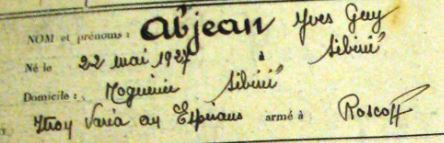 NOM et prénoms : Abjean Yves Guy
Né le 22 mai 1927 à Sibiril
Domicile : Moguériec Sibiril
Itroy Varia an Esperans armé à Roscoff